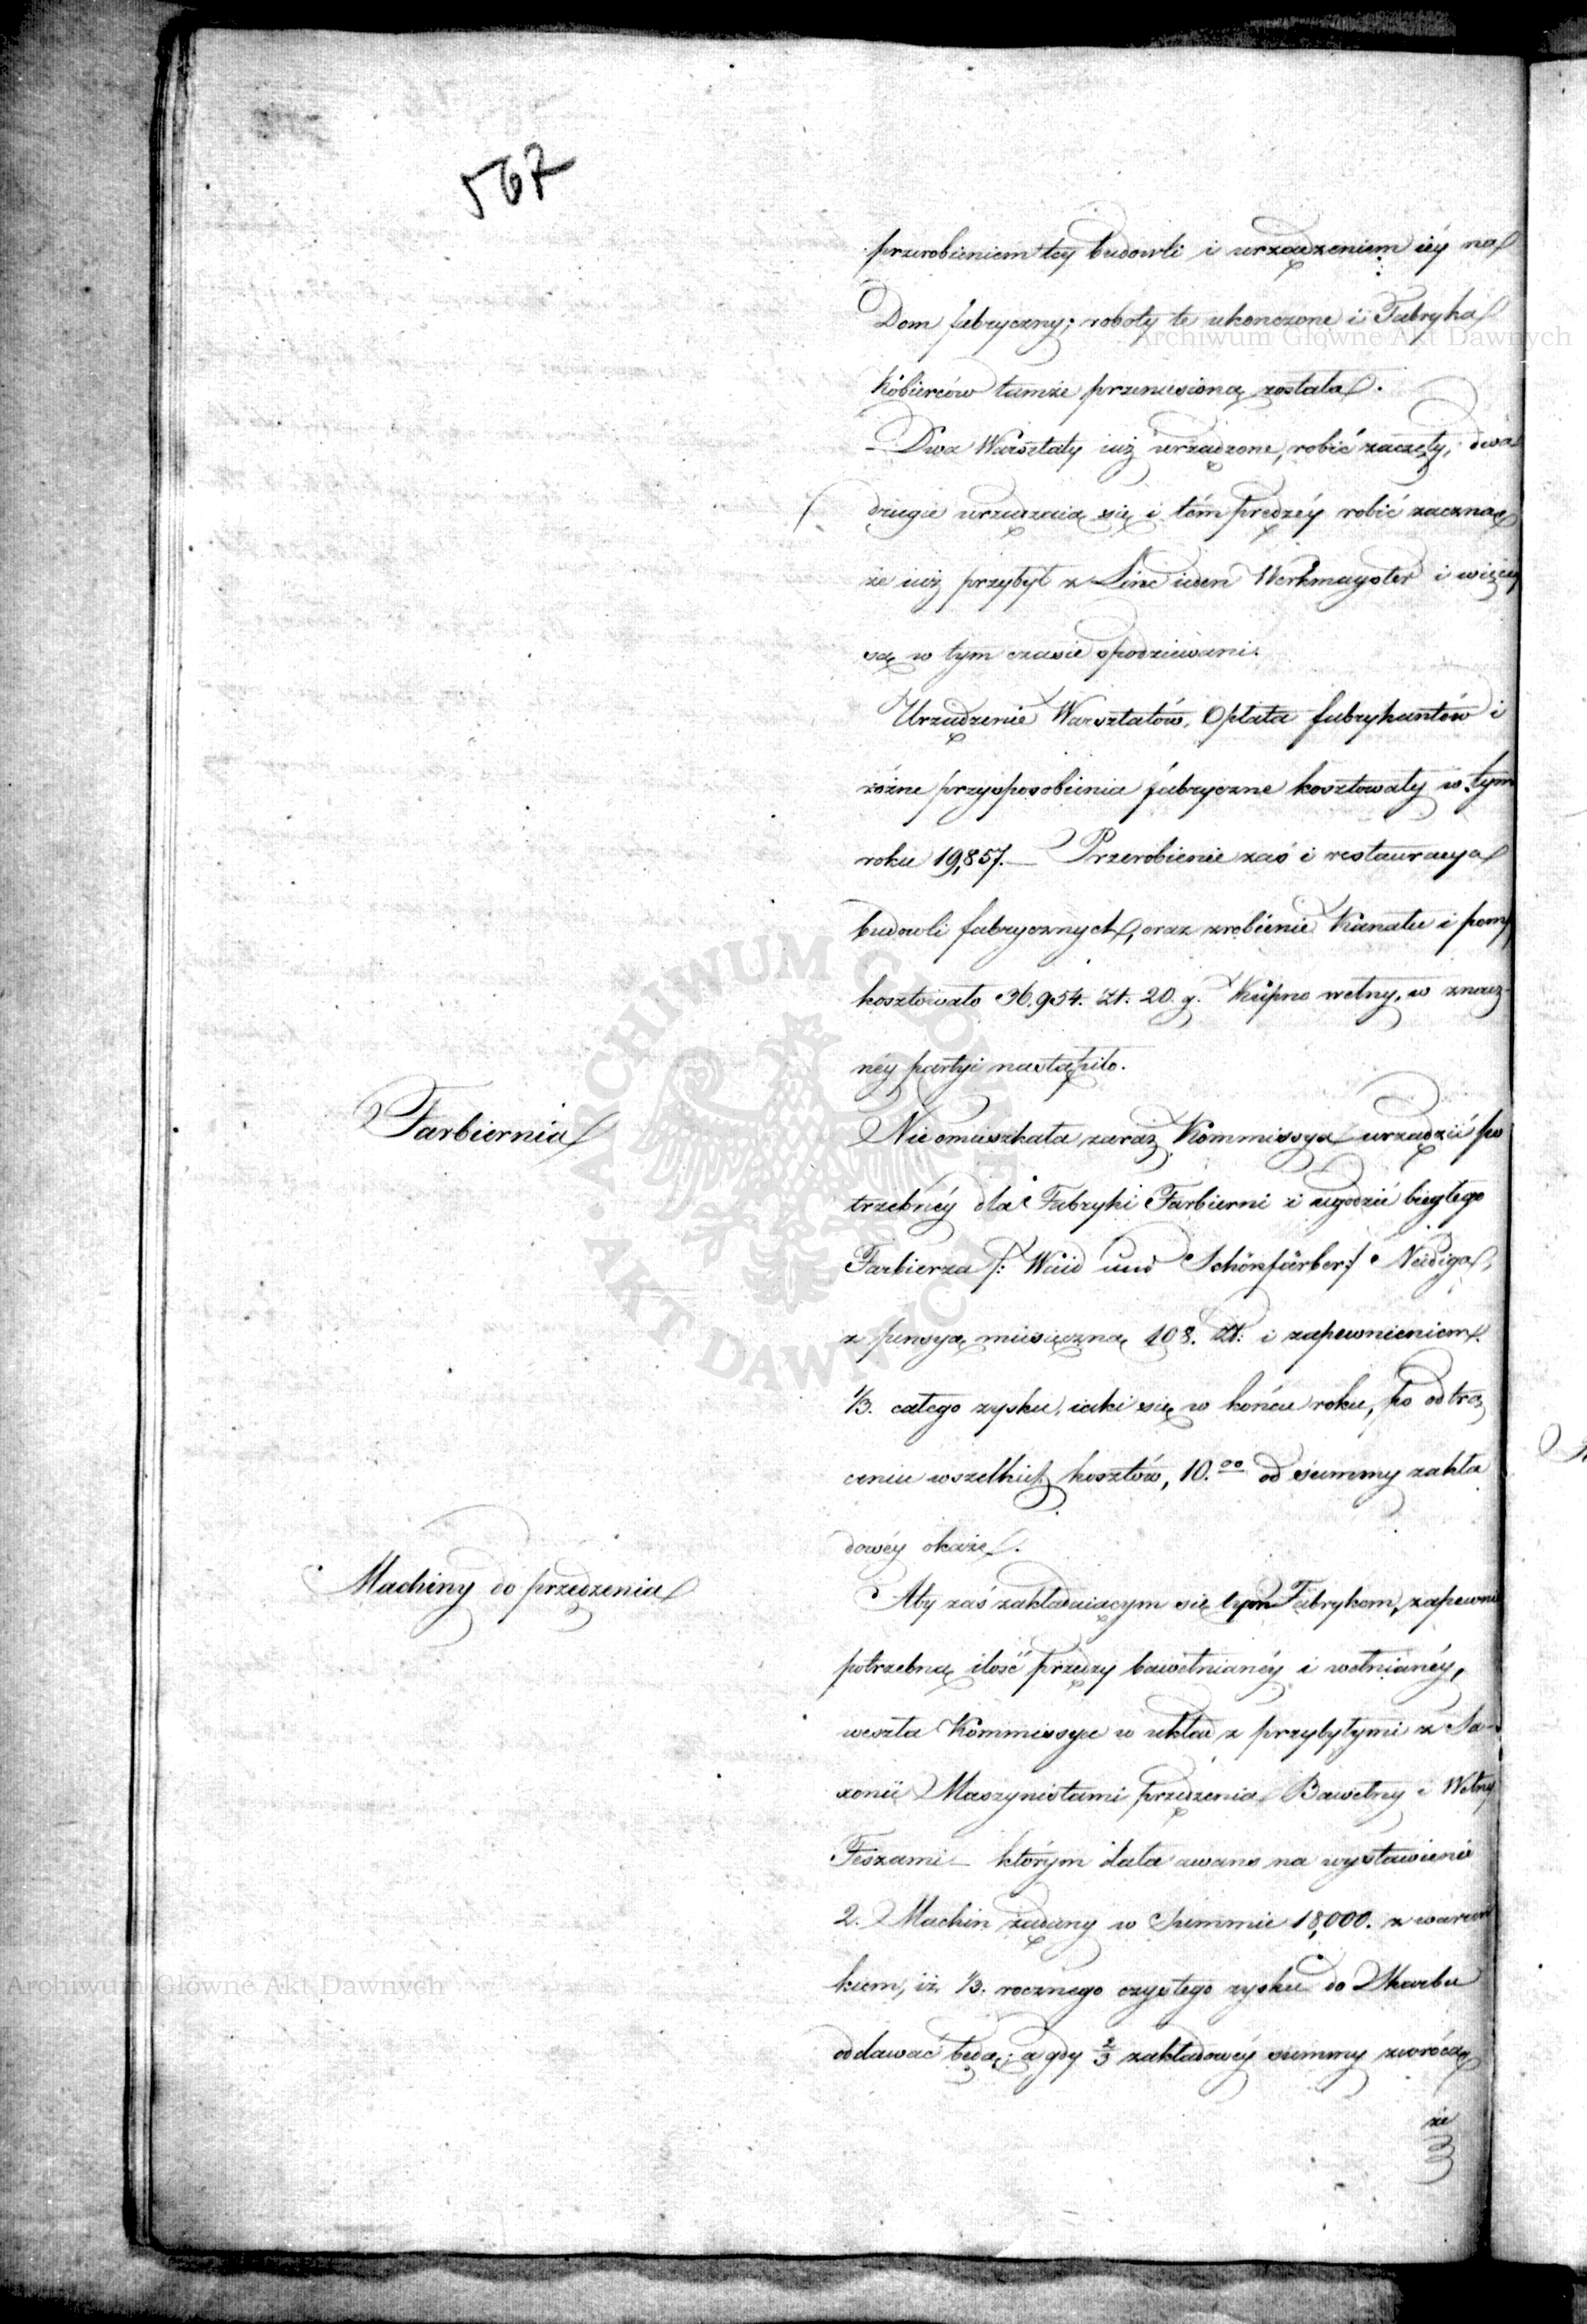 567
przerobieniem tey budowli i urządzeniem iéy na
Dom fabryczny; roboty te ukończone i Fabryka
Kobierców tamże przeniesioną została.
Dwa Warsztaty iuż urządzone, robić zaczęły, dwa
drugie urządzaią się i tém prędzéy robić zaczną
że iuż przybył z Linc ieden Werkmayster i więcéy
są w tym czasie spodziewani.
Urządzenie Warsztatów, Opłata fabrykantów i
różne przysposobienia fabryczne kosztowały w tym
roku 19,857.— Przerobienie zaś i restauracya
budowli fabrycznych, oraz zrobienie Kanału i pomp
kosztowało 36.954. Zł. 20. g. Kupno wełny, w znacz-
néy partyi nastąpiło.
Farbiernia
Nieomieszkała zaraz Kommissya urządzić po
trzebnéy dla Fabryki Farbierni i ugodzić biegłego
Farbierza /: Waid und Schönfärber :/ Neidiga,
z pensyą miesięczną 108. Zł: i zapewnieniem
1/3. całego zysku, iaki się w końcu roku, po odtrą
ceniu wszelkich kosztów, 10.00 od summy zakła
dowéy okaże.
Machiny do przędzenia
Aby zaś zakładaiącym się tym Fabrykom, zapewnić
potrzebną ilość przędzy bawełnianéy i wełnianéy,
weszła Kommissya w układ z przybyłymi z Sa-
xonii Maszynistami przędzenia Bawełny i Wełny
Feszami — którym dała awans na wystawienie
2. Machin żądany w Summie 18,000. z warun
kiem, iż 1/3. rocznego czystego zysku do Skarbu
oddawać będą; a gdy 2/3 zakładowéy summy zwrócą
że